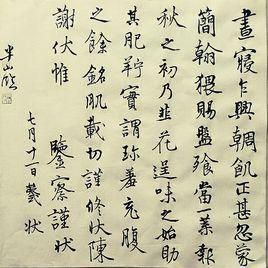 晝寢乍興輖飢正甚忽蒙
簡翰猥賜盤飧當一葉報
秋之初乃韭花逞味之始助
其肥羜實謂珍羞充腹
之餘銘肌載切謹修狀陳
謝伏惟
鑒察謹狀
七月十一日狀